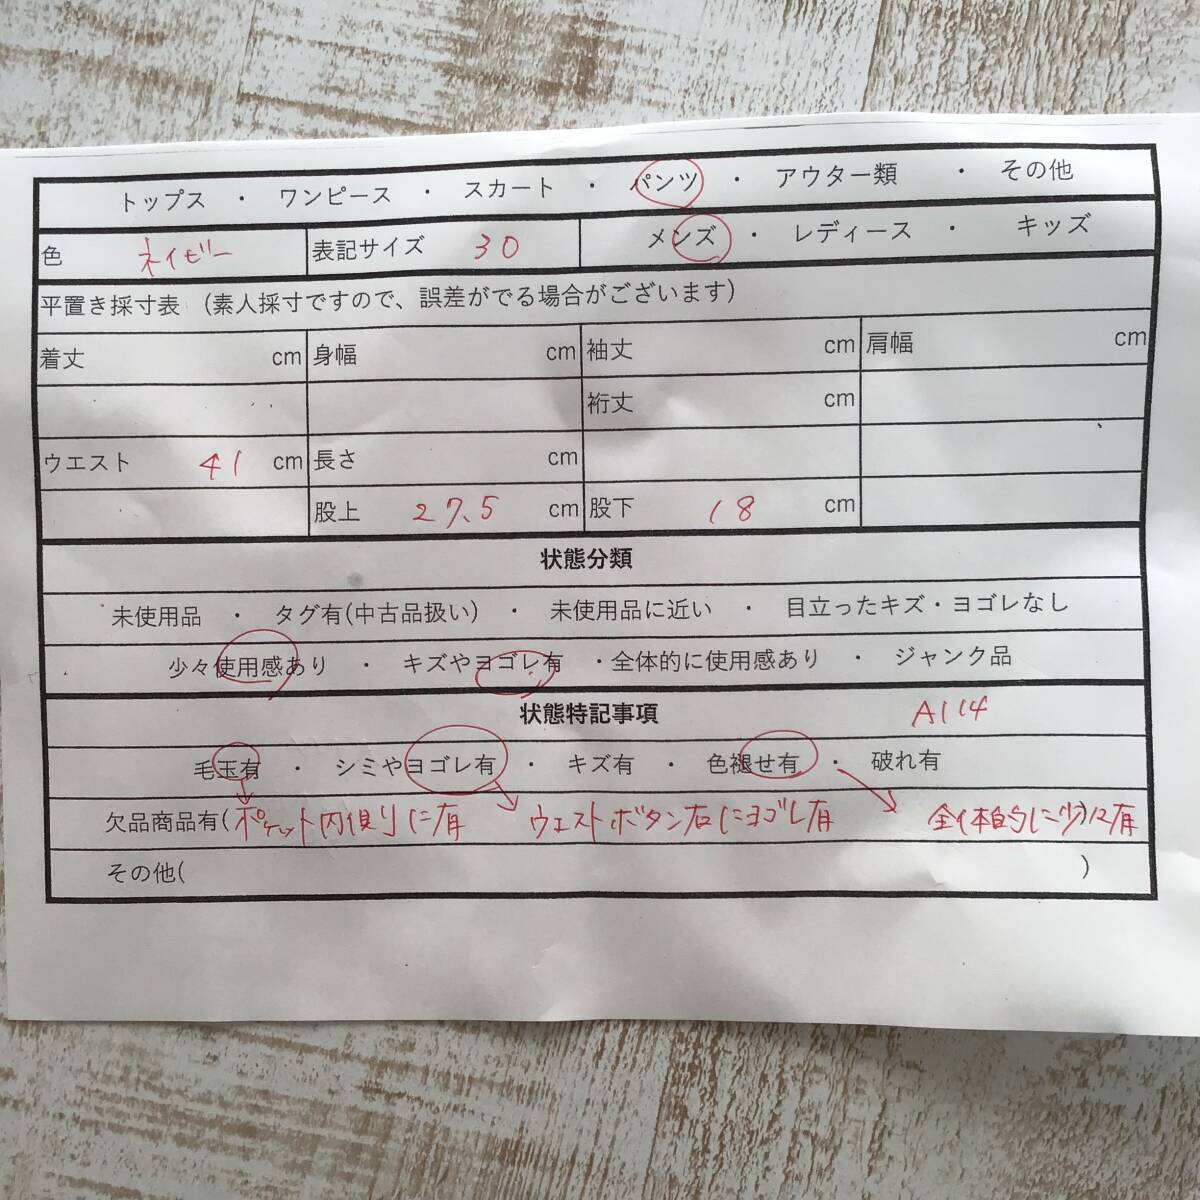 トップス ・ ワンピース ・ スカート ・ パンツ ・ アウター類 ・ その他
色 ネイビー 表記サイズ 30 メンズ ・ レディース ・ キッズ
平置き採寸表 （素人採寸ですので、誤差がでる場合がございます）
着丈 cm 身幅 cm 袖丈 cm 肩幅 cm
裄丈 cm
ウエスト 41 cm 長さ cm
股上 27.5 cm 股下 18 cm
状態分類
未使用品 ・ タグ有(中古品扱い) ・ 未使用品に近い ・ 目立ったキズ・ヨゴレなし
少々使用感あり ・ キズやヨゴレ有 ・全体的に使用感あり ・ ジャンク品
状態特記事項 A114
毛玉有 ・ シミやヨゴレ有 ・ キズ有 ・ 色褪せ有 ・ 破れ有
欠品商品有( ポケット内側りに有 ウエストボタン右にヨゴレ有 全体的に少) に有
その他( )